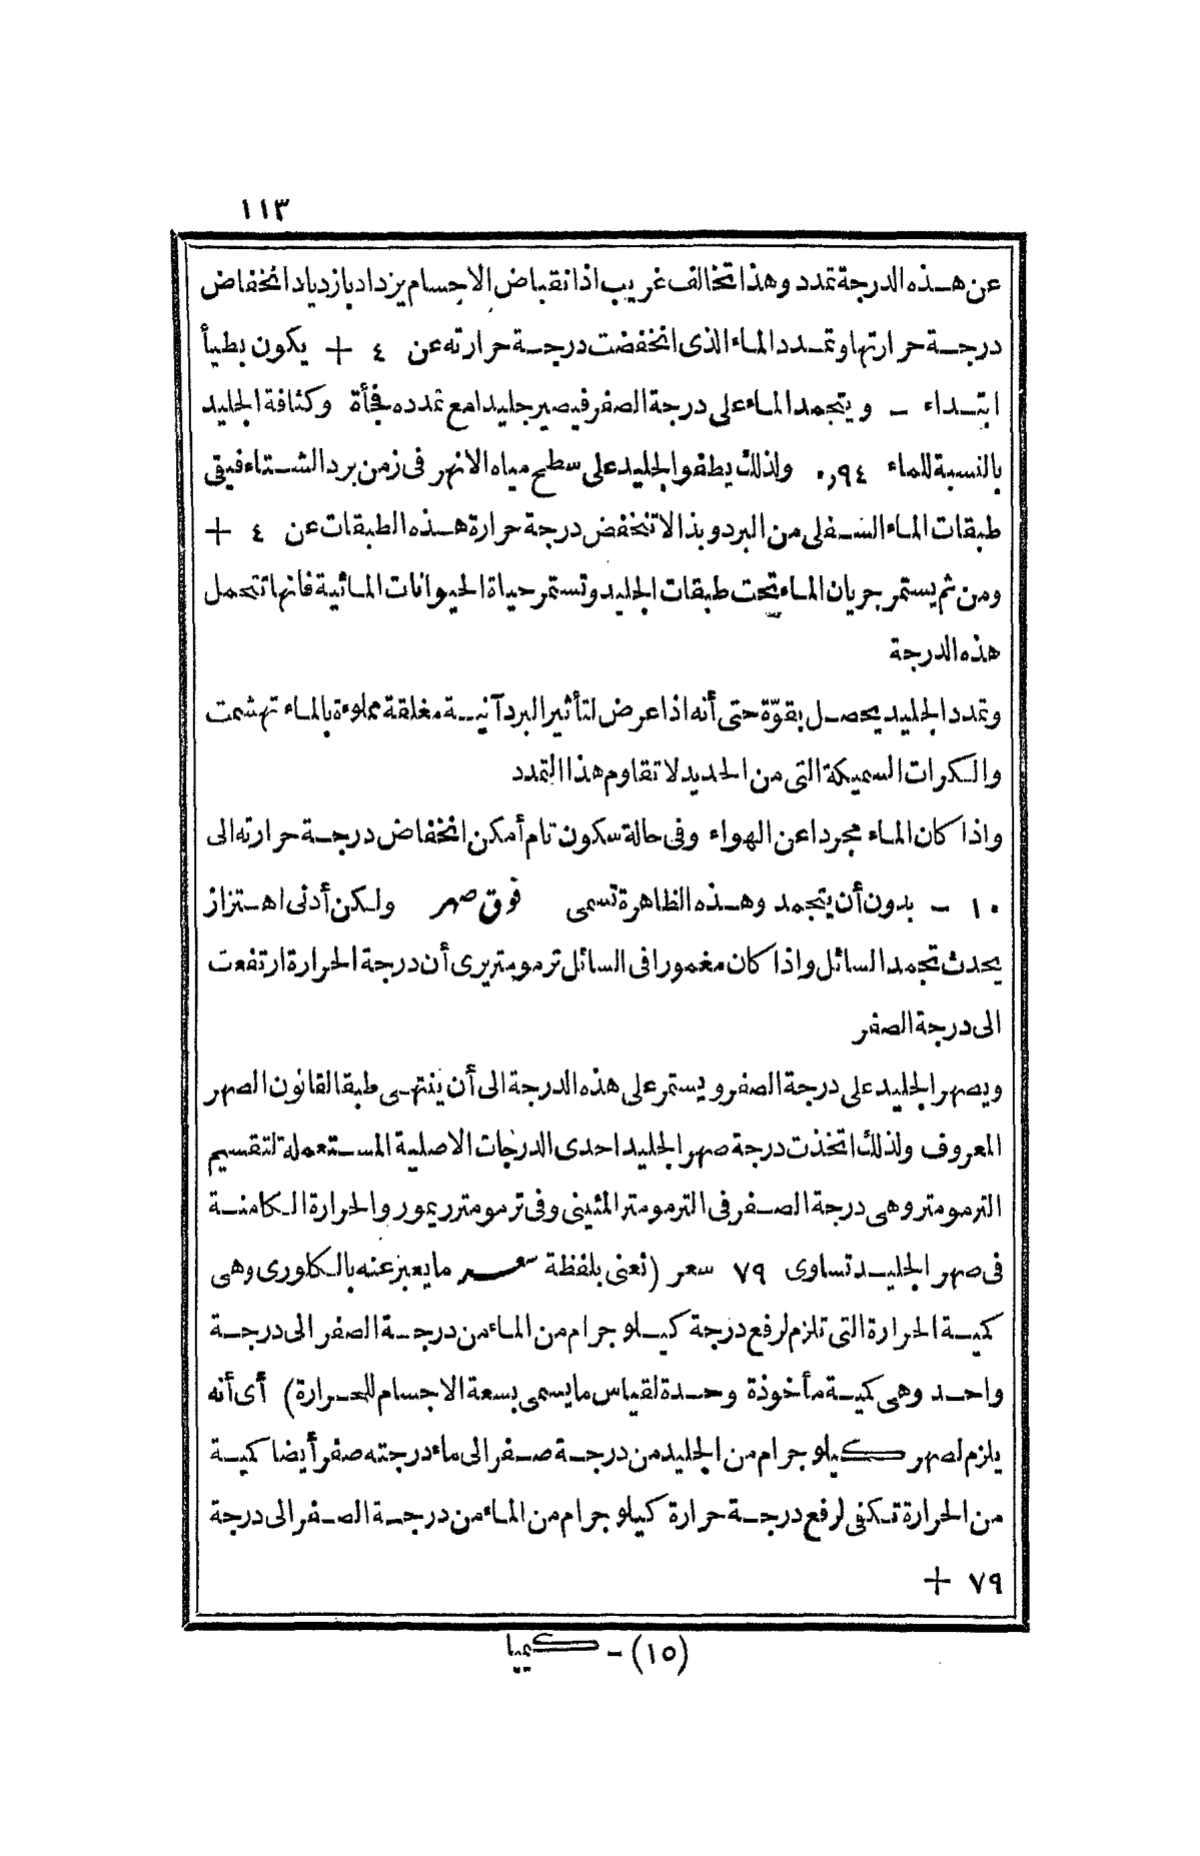 ١١٣
عن هذه الدرجة تمدد وهذا تخالف غريب اذ انقباض الاجسام يزداد بازدياد انخفاض
درجة حرارتها وتمدد الماء الذى انخفضت درجة حرارته عن ٤ + يكون بطيأ
ابتداء – ويتجمد الماء على درجة الصفر فيصير جليدا مع تمدده فجأة وكثافة الجليد
بالنسبة للماء ٠,٩٤ ولذلك يطفو الجليد على سطح مياه الانهر فى زمن برد الشتاء فيقى
طبقات الماء السفلى من البرد وبذا لا تنخفض درجة حرارة هذه الطبقات عن ٤ +
ومن ثم يستمر جريان الماء تحت طبقات الجليد وتستمر حياة الحيوانات المائية فانها تتحمل
هذه الدرجة
وتمدد الجليد يحصل بقوّة حتى أنه اذا عرض لتأثير البرد آنية مغلقة مملوءة بالماء تهشمت
والكرات السميكة التى من الحديد لا تقاوم هذا التمدد
واذا كان الماء مجردا عن الهواء وفى حالة سكون تام أمكن انخفاض درجة حرارته الى
١٠ – بدون أن يتجمد وهذه الظاهرة تسمى فوق صهر ولكن أدنى اهتزاز
يحدث تجمد السائل واذا كان مغمورا فى السائل ترمومتر يرى أن درجة الحرارة ارتفعت
الى درجة الصفر
ويصهر الجليد على درجة الصفر ويستمر على هذه الدرجة الى أن ينتهى طبقا لقانون الصهر
المعروف ولذلك اتخذت درجة صهر الجليد احدى الدرجات الاصلية المستعملة لتقسيم
الترمومتر وهى درجة الصفر فى الترمومتر المئينى وفى ترمومتر ريمور والحرارة الكامنة
فى صهر الجليد تساوى ٧٩ سعر (نعنى بلفظة سعر ما يعبر عنه بالكلورى وهى
كمية الحرارة التى تلزم لرفع درجة كيلو جرام من الماء من درجة الصفر الى درجة
واحد وهى كمية مأخوذة وحدة لقياس ما يسمى بسعة الاجسام للحرارة) أى أنه
يلزم لصهر كيلو جرام من الجليد من درجة صفر الى ماء درجته صفر أيضا كمية
من الحرارة تكفى لرفع درجة حرارة كيلو جرام من الماء من درجة الصفر الى درجة
٧٩ +
(١٥) – كيميا